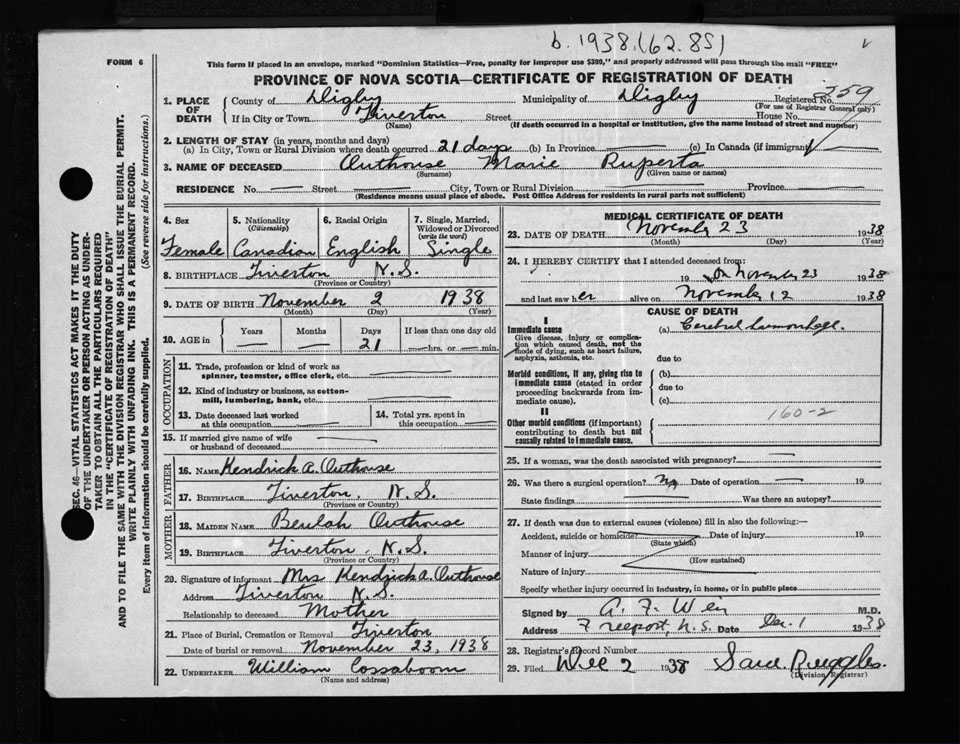 b. 1938.(62.85)
FORM 6
This form if placed in an envelope, marked "Dominion Statistics—Free, penalty for improper use $300," and properly addressed will pass through the mail "FREE"
PROVINCE OF NOVA SCOTIA—CERTIFICATE OF REGISTRATION OF DEATH
1. PLACE OF DEATH { County of Digby Municipality of Digby Registered No. 359
(For use of Registrar General only)
If in City or Town Tiverton Street House No.
(Name) (If death occurred in a hospital or institution, give the name instead of street and number)
2. LENGTH OF STAY (in years, months and days)
(a) In City, Town or Rural Division where death occurred 21 days (b) In Province — (c) In Canada (if immigrant)
3. NAME OF DECEASED Outhouse Marie Ruperta
(Surname) (Given name or names)
RESIDENCE No. — Street — City, Town or Rural Division — Province —
(Residence means usual place of abode. Post Office Address for residents in rural parts not sufficient)
4. Sex 5. Nationality (Citizenship) 6. Racial Origin 7. Single, Married, Widowed or Divorced (write the word)
Female Canadian English Single
8. BIRTHPLACE Tiverton N.S.
(Province or Country)
9. DATE OF BIRTH November 2 1938
(Month) (Day) (Year)
10. AGE in Years — Months — Days 21 If less than one day old — hrs. or — min.
OCCUPATION
11. Trade, profession or kind of work as spinner, teamster, office clerk, etc. —
12. Kind of industry or business, as cotton-mill, lumbering, bank, etc. —
13. Date deceased last worked at this occupation — 14. Total yrs. spent in this occupation —
15. If married give name of wife or husband of deceased —
FATHER
16. NAME Kendrick A. Outhouse
17. BIRTHPLACE Tiverton, N.S.
(Province or Country)
MOTHER
18. MAIDEN NAME Beulah Outhouse
19. BIRTHPLACE Tiverton, N.S.
(Province or Country)
20. Signature of informant Mrs Kendrick A. Outhouse
Address Tiverton N.S.
Relationship to deceased Mother
21. Place of Burial, Cremation or Removal Tiverton
Date of burial or removal November 23, 1938
22. UNDERTAKER William Cossaboom
(Name and address)
MEDICAL CERTIFICATE OF DEATH
23. DATE OF DEATH November 23 1938
(Month) (Day) (Year)
24. I HEREBY CERTIFY that I attended deceased from:
19 on November 23 1938
and last saw her alive on November 12 1938
CAUSE OF DEATH
I
Immediate cause
Give disease, injury or complication which caused death, not the mode of dying, such as heart failure, asphyxia, asthenia, etc.
(a) Cerebral hemorrhage.
due to
Morbid conditions, if any, giving rise to immediate cause (stated in order proceeding backwards from immediate cause).
(b)
due to
(c)
II
Other morbid conditions (if important) contributing to death but not causally related to immediate cause.
160-2
25. If a woman, was the death associated with pregnancy? —
26. Was there a surgical operation? No Date of operation — 19
State findings — Was there an autopsy?
27. If death was due to external causes (violence) fill in also the following:—
Accident, suicide or homicide? Date of injury 19
(State which)
Manner of injury
(How sustained)
Nature of injury
Specify whether injury occurred in industry, in home, or in public place
Signed by A. F. Weir M.D.
Address Freeport, N.S. Date Dec. 1 1938
28. Registrar's Record Number
29. Filed Dec 2 1938 Ruggles.
(Division Registrar)
SEC. 46—VITAL STATISTICS ACT MAKES IT THE DUTY
OF THE UNDERTAKER OR PERSON ACTING AS UNDER-
TAKER TO OBTAIN ALL THE PARTICULARS REQUIRED
IN THE "CERTIFICATE OF REGISTRATION OF DEATH"
AND TO FILE THE SAME WITH THE DIVISION REGISTRAR WHO SHALL ISSUE THE BURIAL PERMIT.
WRITE PLAINLY WITH UNFADING INK. THIS IS A PERMANENT RECORD.
Every item of information should be carefully supplied. (See reverse side for instructions.)